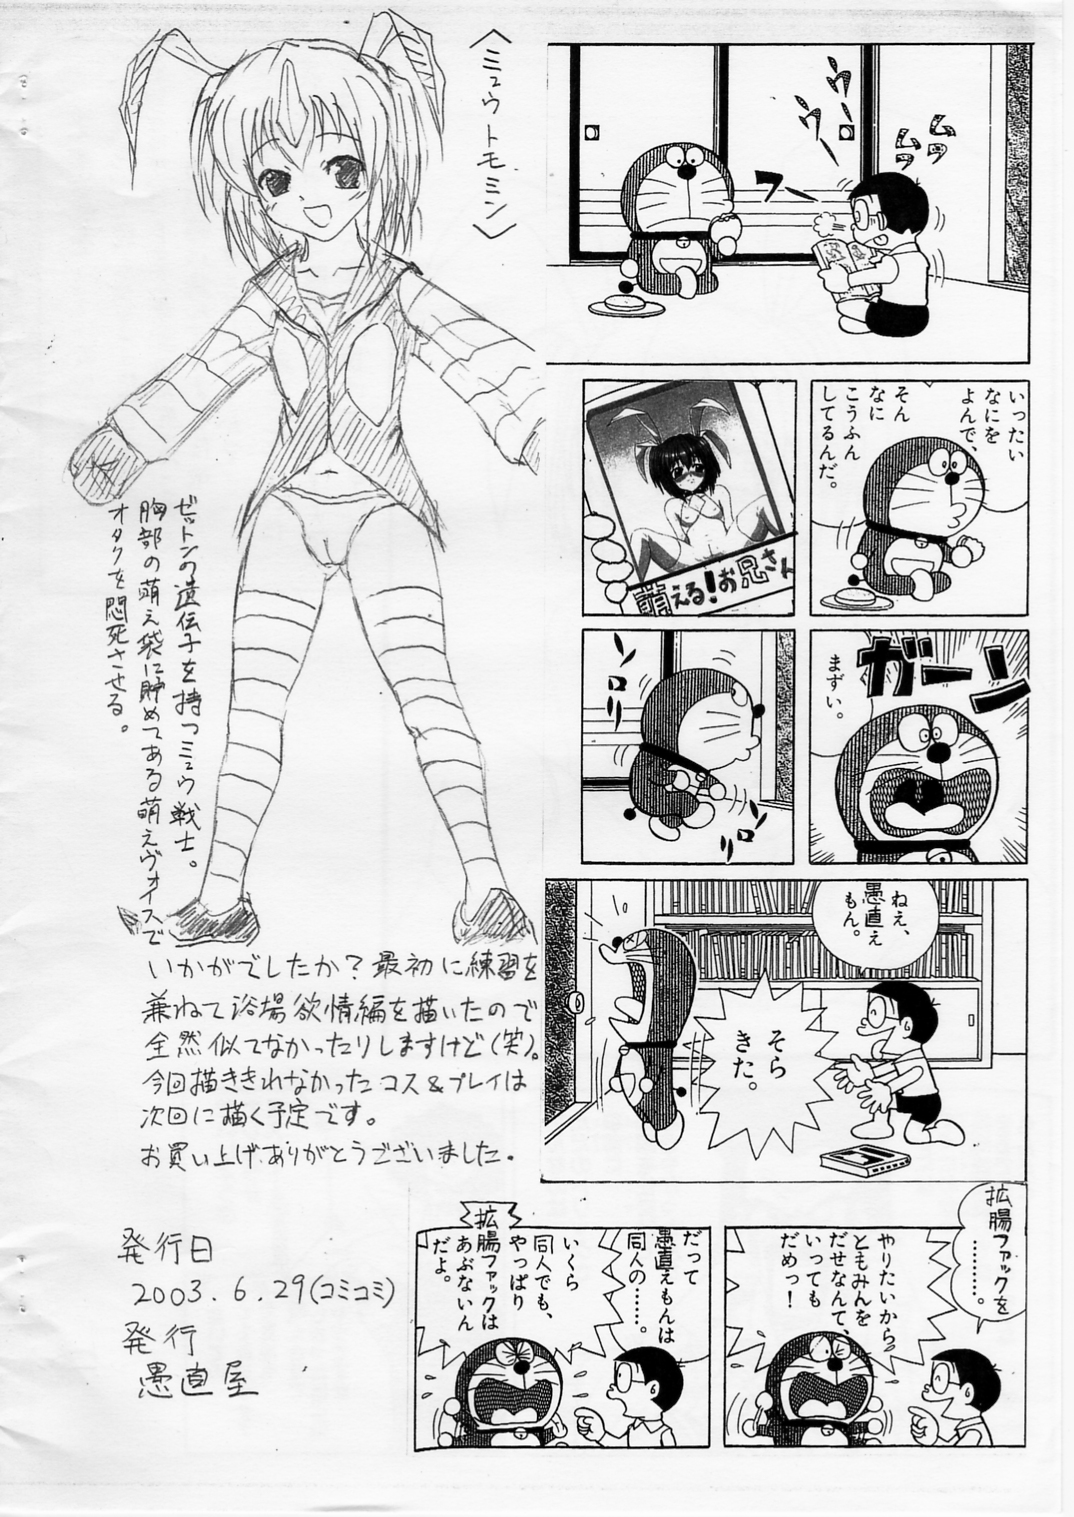 〈ミュウトモミン〉
ゼットンの遺伝子を持つミュウ戦士。
胸部の萌え袋に貯めてある萌えヴォイスで
オタクを悶死させる。
いかがでしたか？最初に練習を
兼ねて浴場欲情編を描いたので
全然似てなかったりしますけど(笑)。
今回描ききれなかったコス&プレイは
次回に描く予定です。
お買い上げありがとうございました。
発行日
2003.6.29(コミコミ)
発行
愚直屋
ムラ
ムラ
ウ゛ー
ウ゛ー
フー
いったい
なにを
よんで、
そん
なに
こうふん
してるんだ。
萌える!お兄さん
ガーン
まずい。
ソロリ
ソロリ
ねえ、
愚直え
もん。
そら
きた。
拡腸ファックを
…………。
やりたいから
ともみんを
だせなんて、
いっても
だめっ！
だって
愚直えもんは
同人の……。
いくら
同人でも、
やっぱり
拡腸ファックは
あぶないん
だよ。